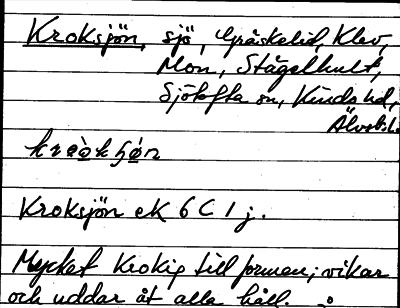 Kroksjön, sjö, Gräskelid, Klev,
Mon, Stågelhult,
Sjötofta sn, Kinds hd,
Älvsb.l.
Kroksjön eK 6 C 1 j.
Mycket krokig till formen; vikar
och uddar åt alla håll.